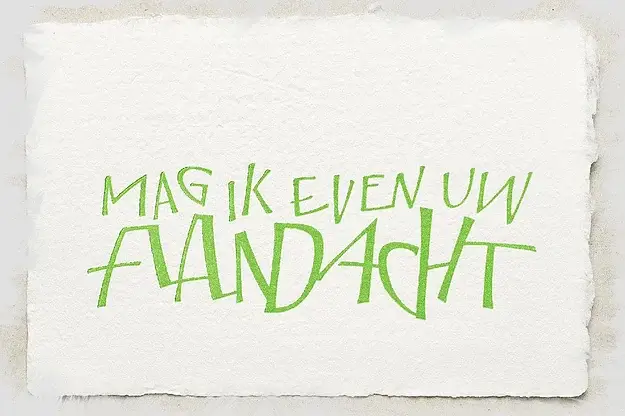 MAG IK EVEN UW
AANDACHT